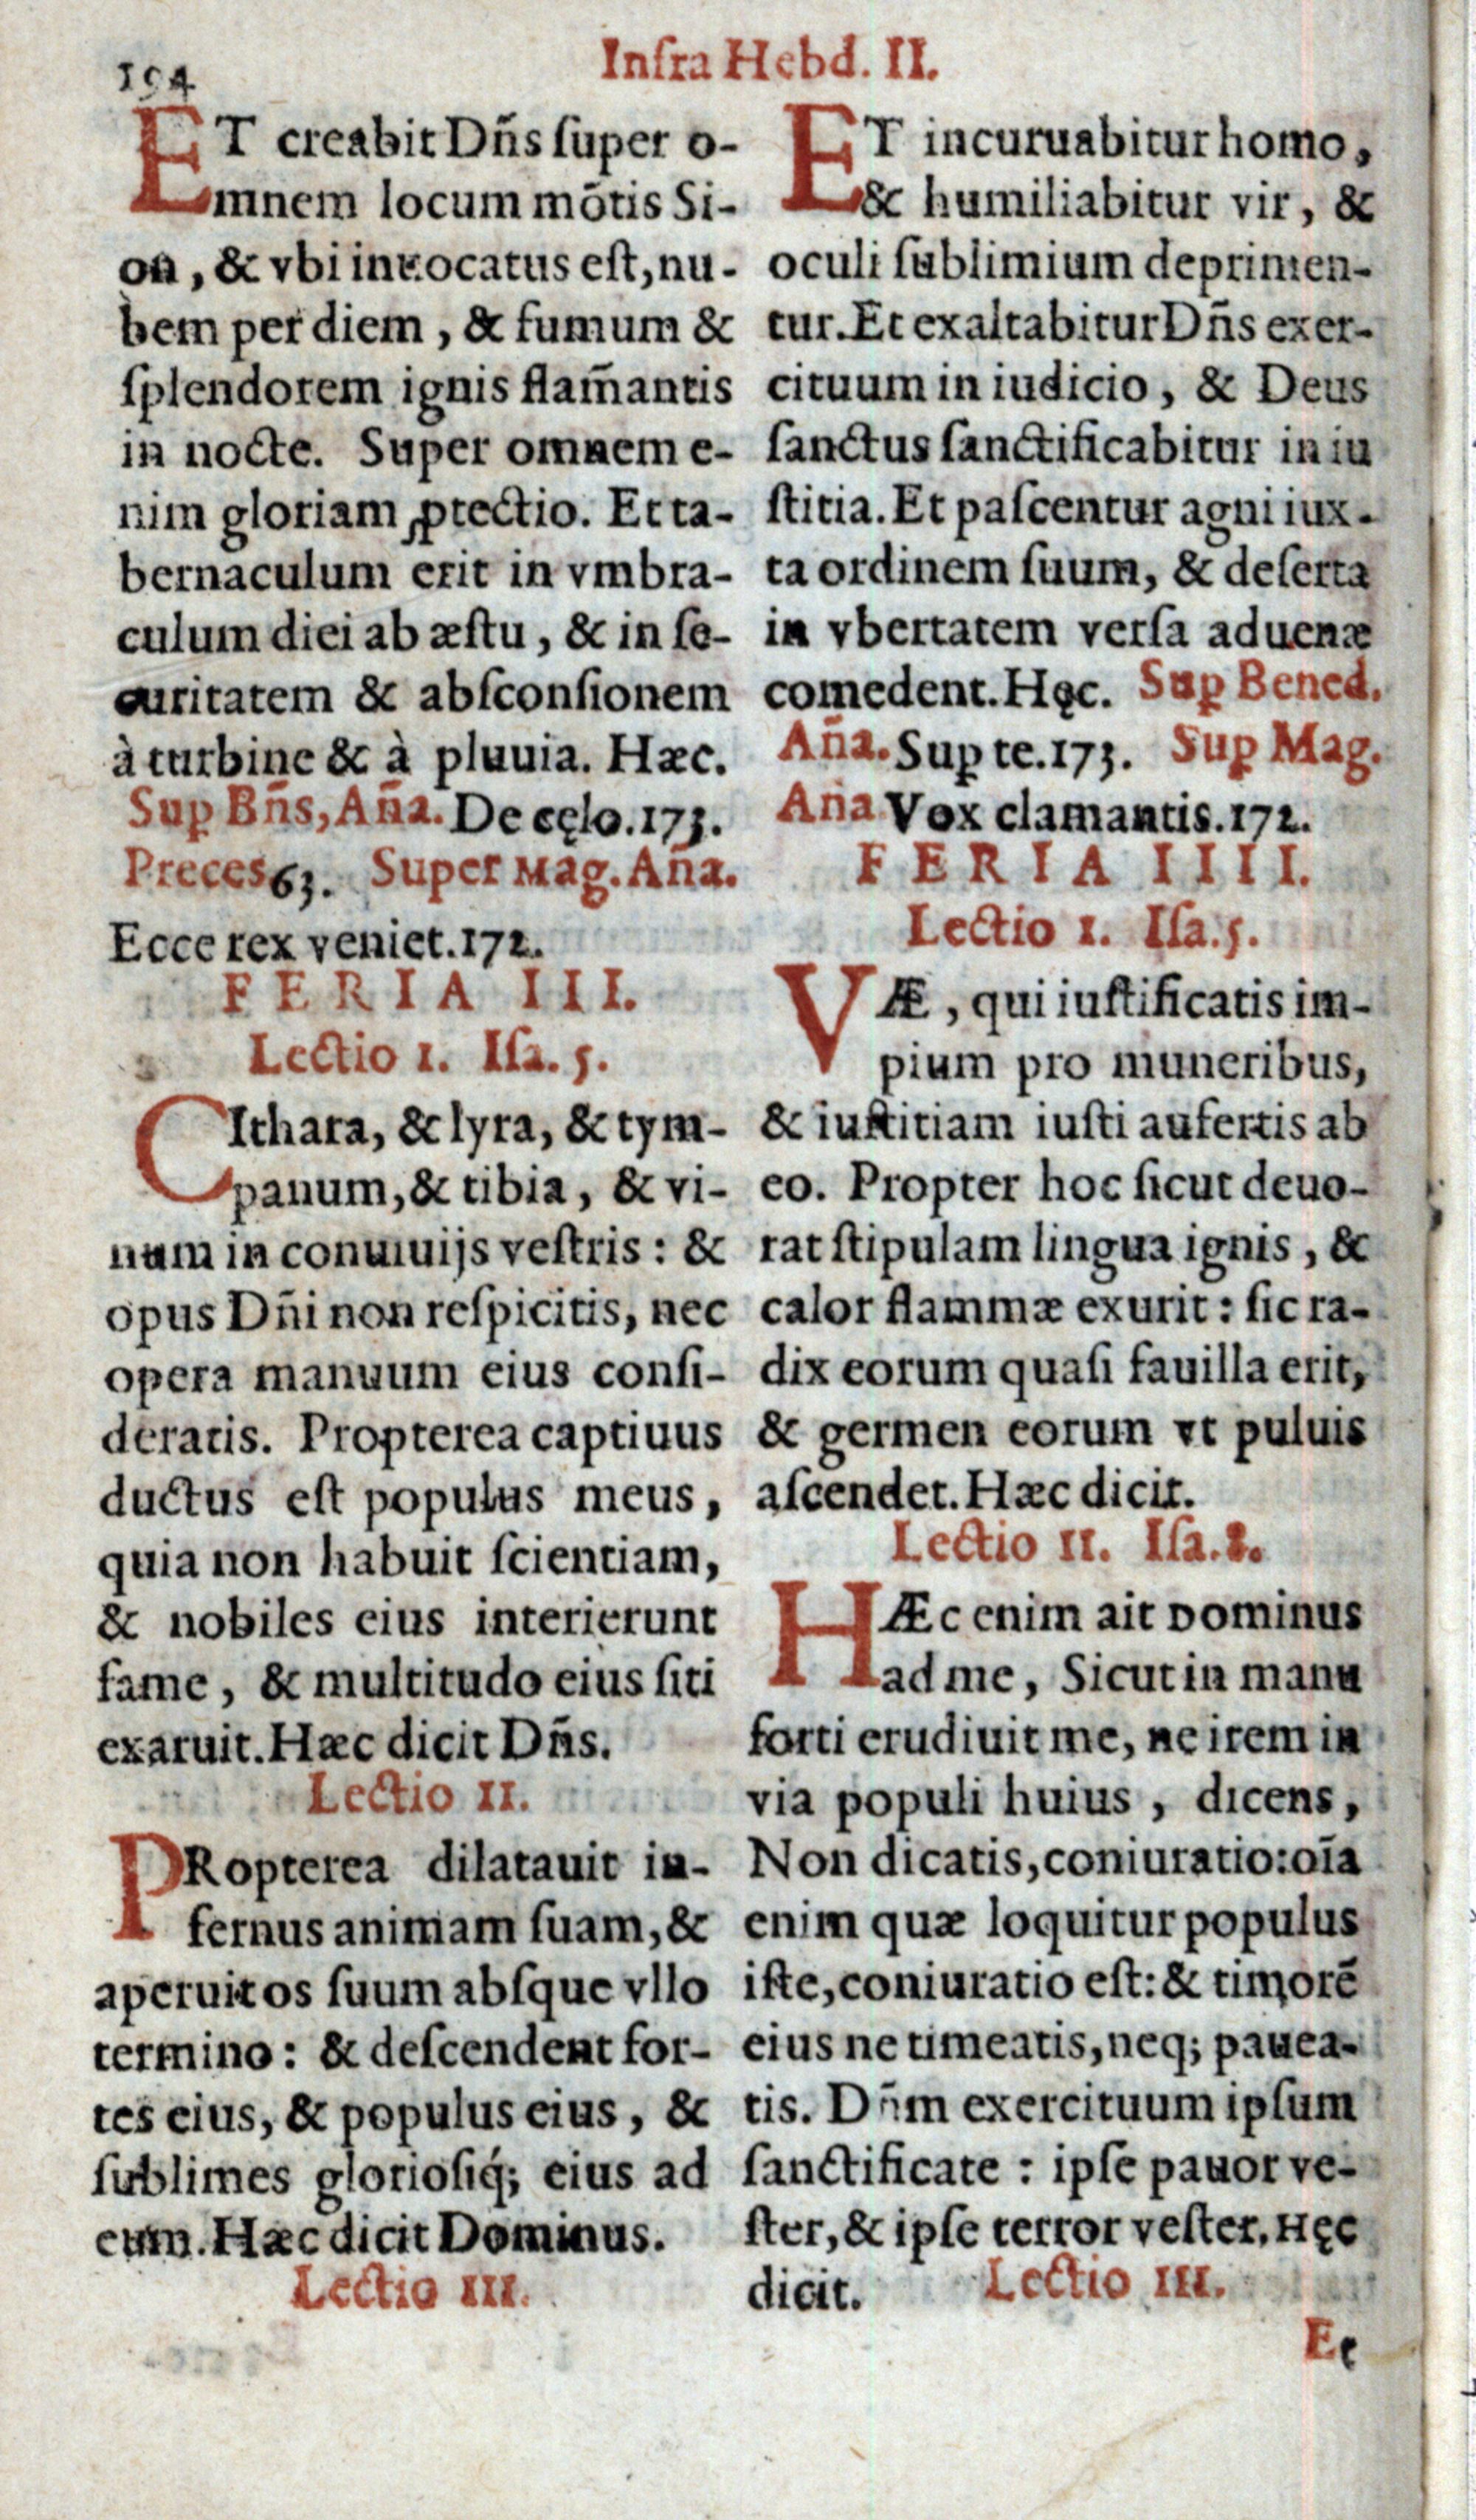 194
Infra Hebd. II.
ET creabit Dñs ſuper o-
mnem locum mõtis Si-
on, & vbi inuocatus eſt, nu-
bem per diem, & fumum &
ſplendorem ignis flam̃antis
in nocte. Super omnem e-
nim gloriam ꝓtectio. Et ta-
bernaculum erit in vmbra-
culum diei ab æſtu, & in ſe-
curitatem & abſconſionem
à turbine & à pluuia. Hæc.
Suꝑ Bñs, Aña. De cęlo. 173.
Preces 63. Super Mag. Aña.
Ecce rex veniet. 172.
FERIA III.
Lectio I. Iſa. 5.
CIthara, & lyra, & tym-
panum, & tibia, & vi-
num in conuiuijs veſtris: &
opus Dñi non reſpicitis, nec
opera manuum eius conſi-
deratis. Propterea captiuus
ductus eſt populus meus,
quia non habuit ſcientiam,
& nobiles eius interierunt
fame, & multitudo eius ſiti
exaruit. Hæc dicit Dñs.
Lectio II.
PRopterea dilatauit in-
fernus animam ſuam, &
aperuit os ſuum abſque vllo
termino: & deſcendent for-
tes eius, & populus eius, &
ſublimes glorioſiq́; eius ad
eum. Hæc dicit Dominus.
Lectio III.
ET incuruabitur homo,
& humiliabitur vir, &
oculi ſublimium deprimen-
tur. Et exaltabitur Dñs exer-
cituum in iudicio, & Deus
ſanctus ſanctificabitur in iu
ſtitia. Et paſcentur agni iux-
ta ordinem ſuum, & deſerta
in vbertatem verſa aduenæ
comedent. Hęc. Suꝑ Bened.
Aña. Suꝑ te. 173. Suꝑ Mag.
Aña Vox clamantis. 172.
FERIA IIII.
Lectio I. Iſa. 5.
VÆ, qui iuſtificatis im-
pium pro muneribus,
& iuſtitiam iuſti aufertis ab
eo. Propter hoc ſicut deuo-
rat ſtipulam lingua ignis, &
calor flammæ exurit: ſic ra-
dix eorum quaſi fauilla erit,
& germen eorum vt puluis
aſcendet. Hæc dicit.
Lectio II. Iſa. 8.
HÆc enim ait Dominus
ad me, Sicut in manu
forti erudiuit me, ne irem in
via populi huius, dicens,
Non dicatis, coniuratio: oīa
enim quæ loquitur populus
iſte, coniuratio eſt: & timorē
eius ne timeatis, neq; pauea-
tis. Dñm exercituum ipſum
ſanctificate: ipſe pauor ve-
ſter, & ipſe terror veſter. Hęc
dicit. Lectio III.
Et